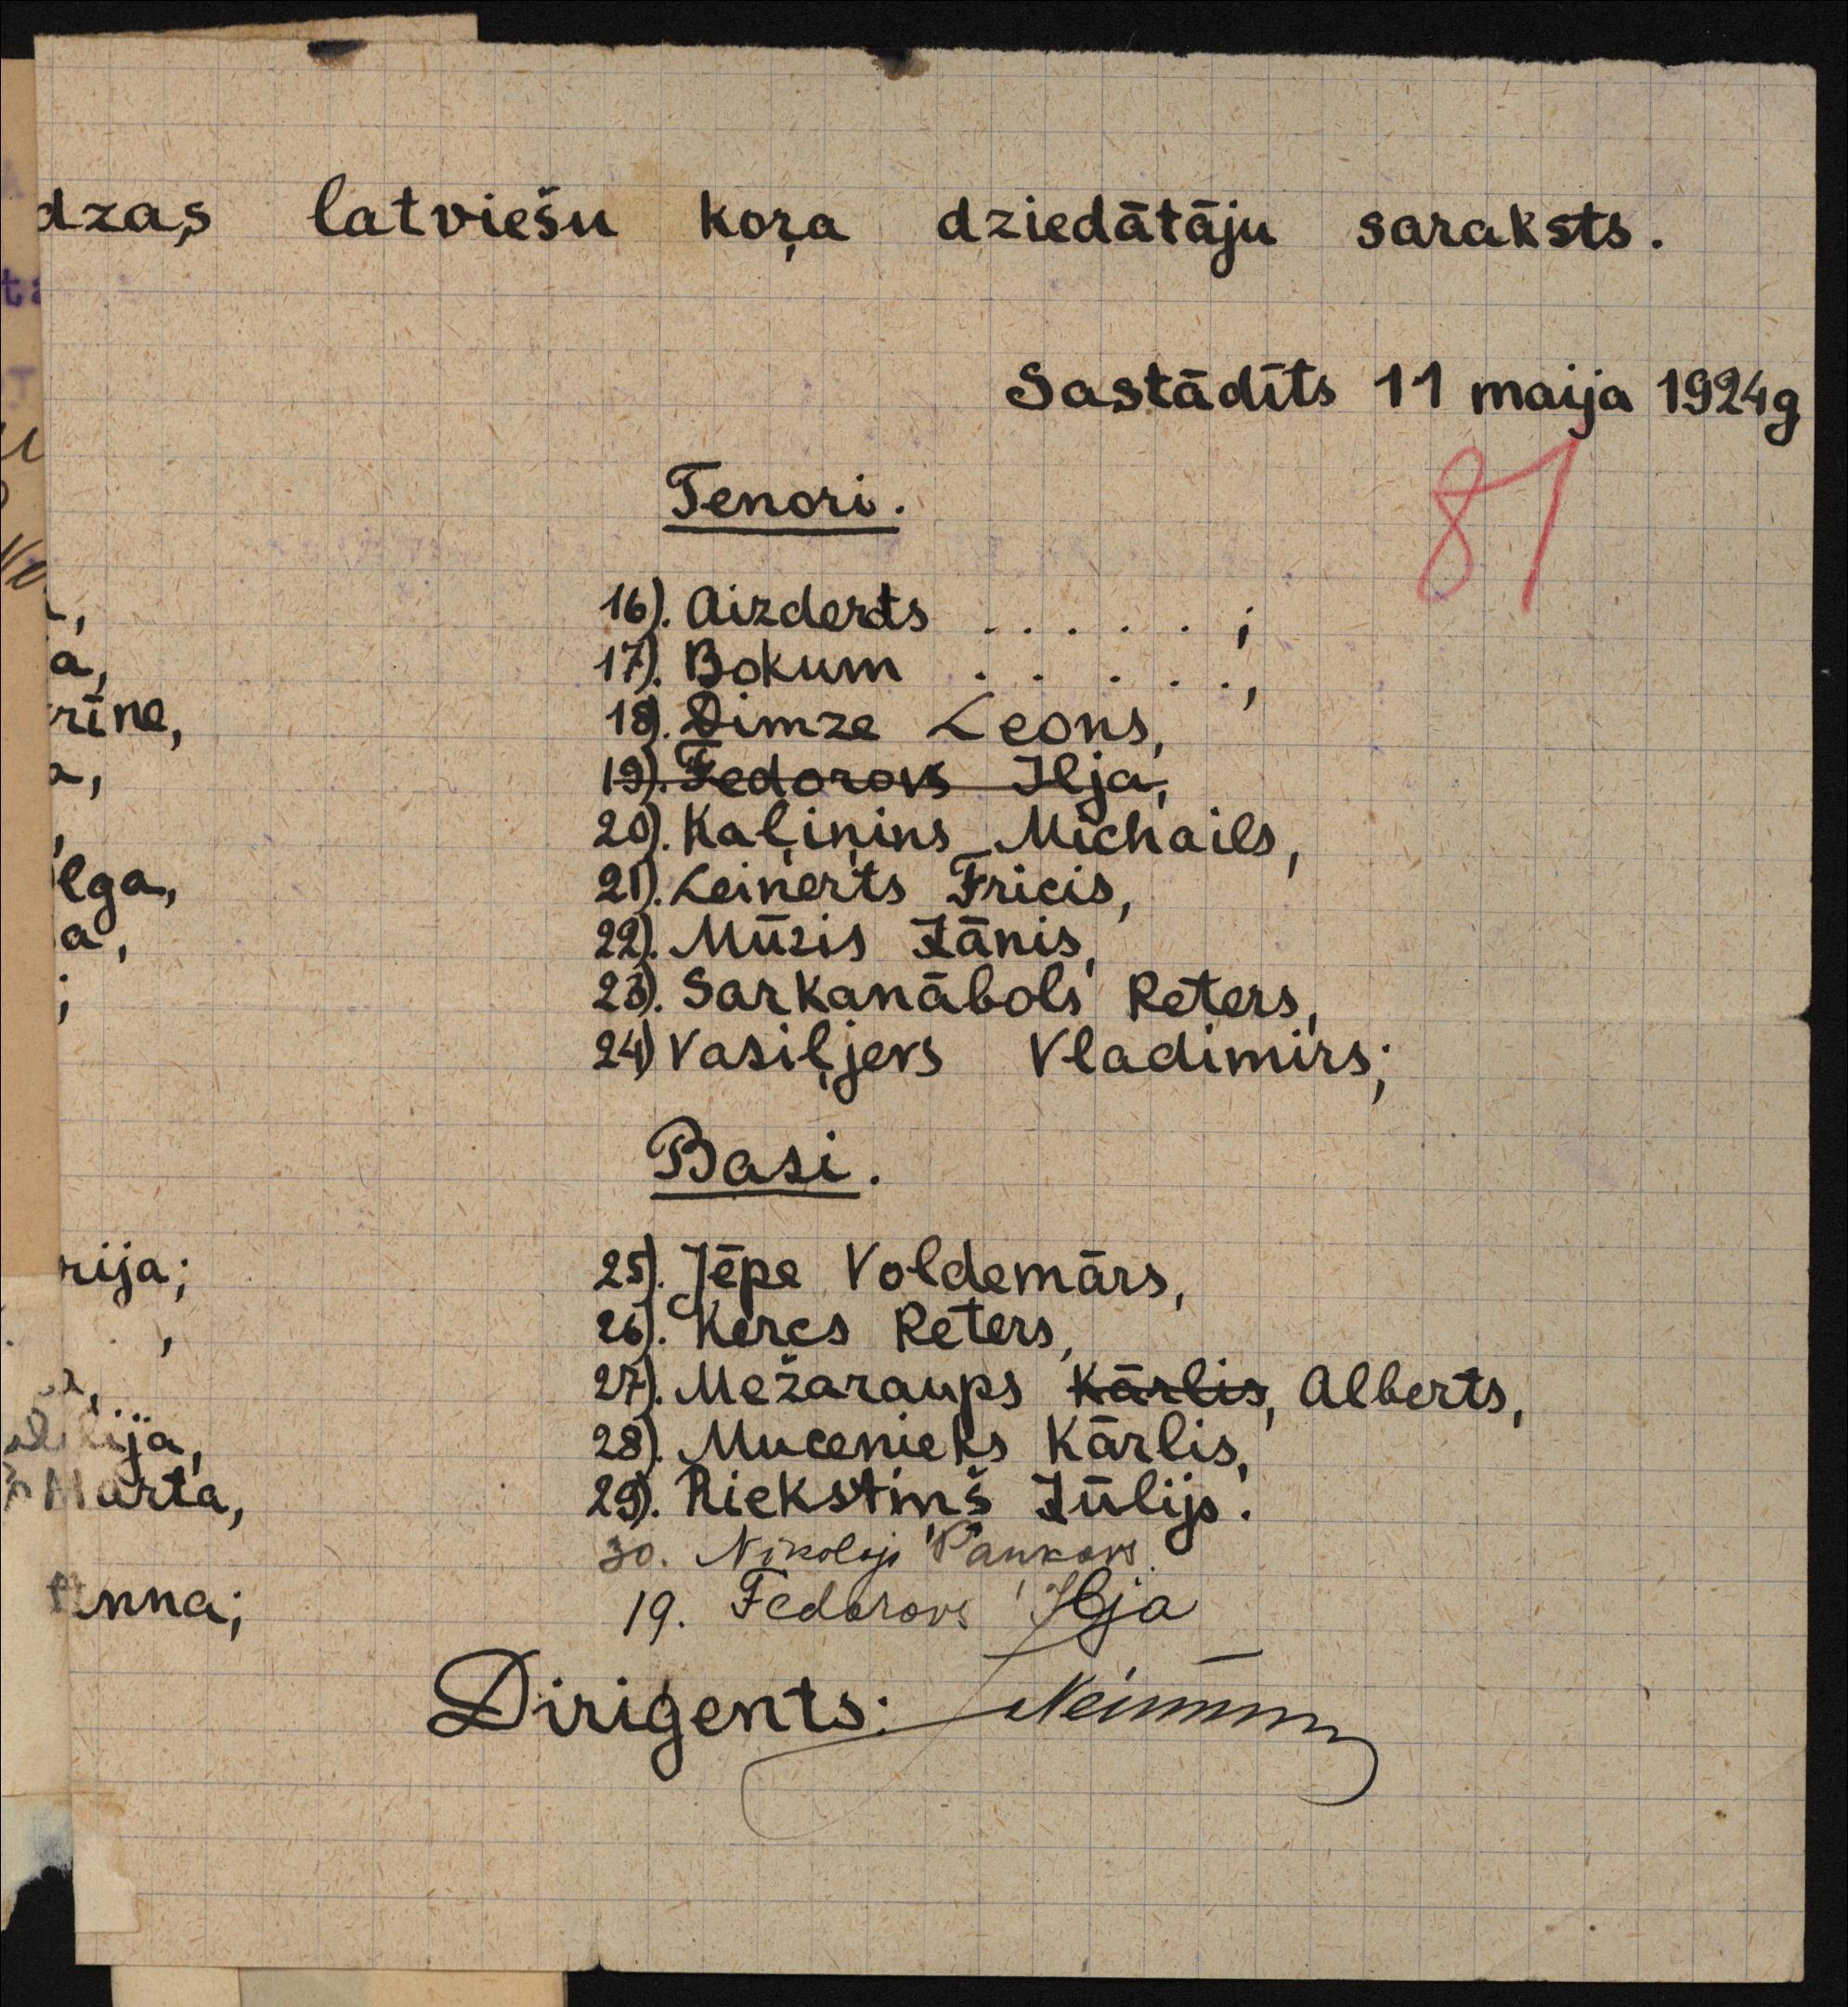 dzas latviešu koŗa dziedātāju saraksts.
Sastādīts 11 maija 1924g
81
Tenori.
16). Aizderts . . . . . ;
17). Bokum . . . . . ,
18). Dimze Leons,
19). Fedorovs Ilja,
20). Kaļiņins Michails,
21). Leinerts Fricis,
22). Mūzis Jānis,
23). Sarkanābols Peters,
24) Vasiļjevs Vladimirs;
Basi.
25). Jēpe Voldemārs,
26). Kercs Peters,
27). Mežaraups Kārlis, Alberts,
28). Mucenieks Kārlis,
29). Riekstiņš Jūlijs.
30. Nikolajs Pankovs
19. Fedorovs Ilja
Diriģents:
a,
rīne,
a,
lga,
a,
;
rija;
,
ija,
Marta,
Anna;